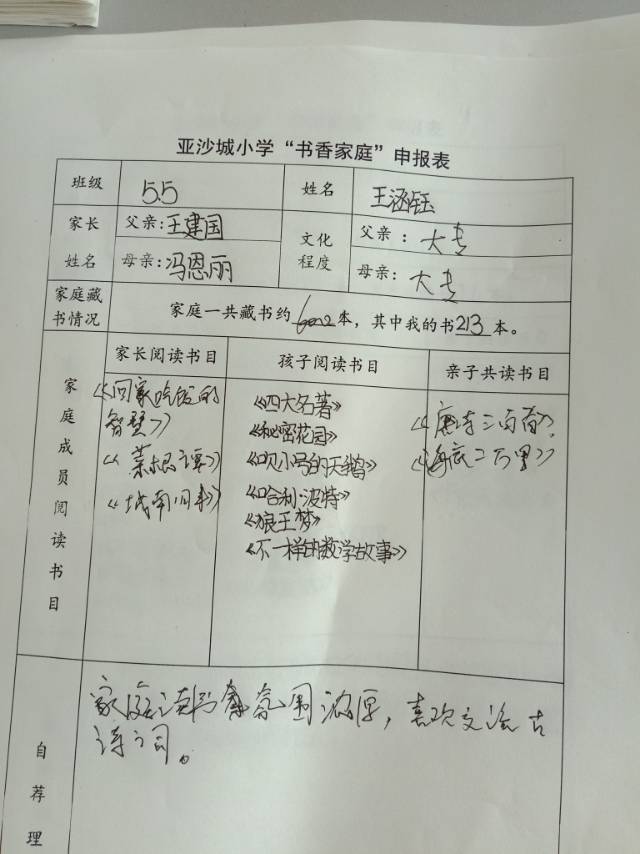 亚沙城小学“书香家庭”申报表
班级 5.5 姓名 王涵钰
家长姓名 父亲:王建国 文化程度 父亲:大专
母亲:冯恩丽 母亲:大专
家庭藏书情况 家庭一共藏书约本，其中我的书213本。
家庭成员阅读书目
家长阅读书目 孩子阅读书目 亲子共读书目
《回家吃饭的
智慧》
《菜根谭》
《城南旧事》
《四大名著》
《秘密花园》
《吹小号的天鹅》
《哈利·波特》
《狼王梦》
《不一样的数学故事》
《唐诗三百首》
《海底二万里》
自荐理
家庭读书氛围浓厚，喜欢交流古
诗词。